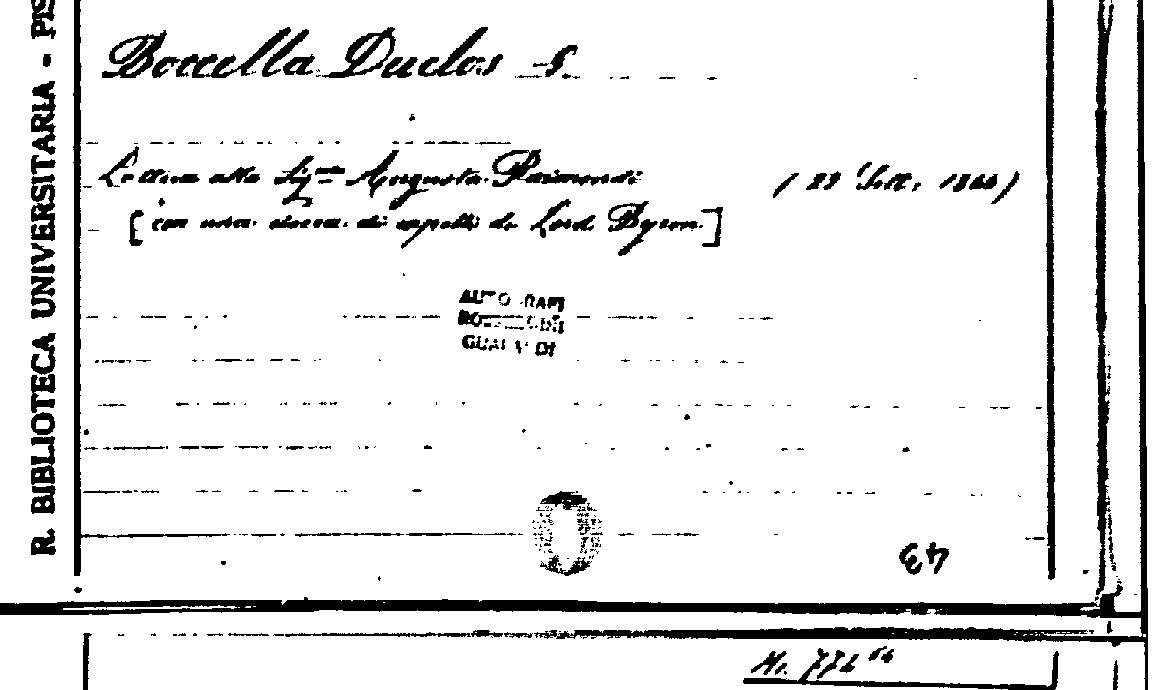 R. BIBLIOTECA UNIVERSITARIA - PIS
Boccella Duclos S.
Lettera alla Sig.ra Augusta Raimondi
[con una ciocca di capelli di Lord Byron]
AUTOGRAFI
GUALANDI
43
Ms. 772